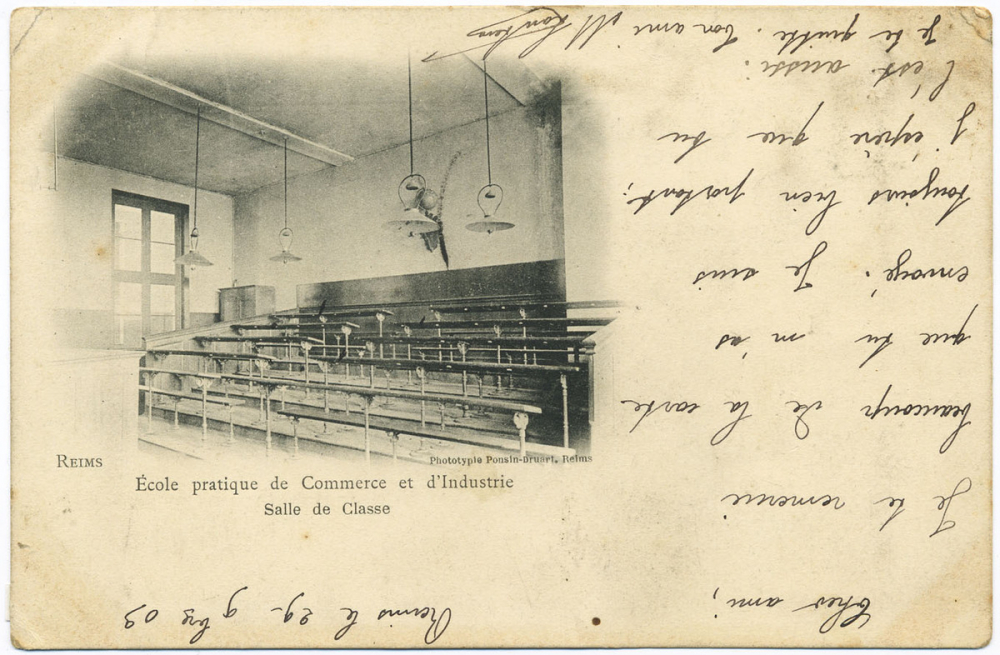 REIMS
Phototypie Ponsin-Druart, Reims
École pratique de Commerce et d'Industrie
Salle de Classe
Reims le 29 9bre 03
Cher ami,
Je te remercie
beaucoup de la carte
que tu m'as
envoyé. Je suis
toujours bien portant;
j'espère que tu
l'est aussi.
Je te quitte. Ton ami M